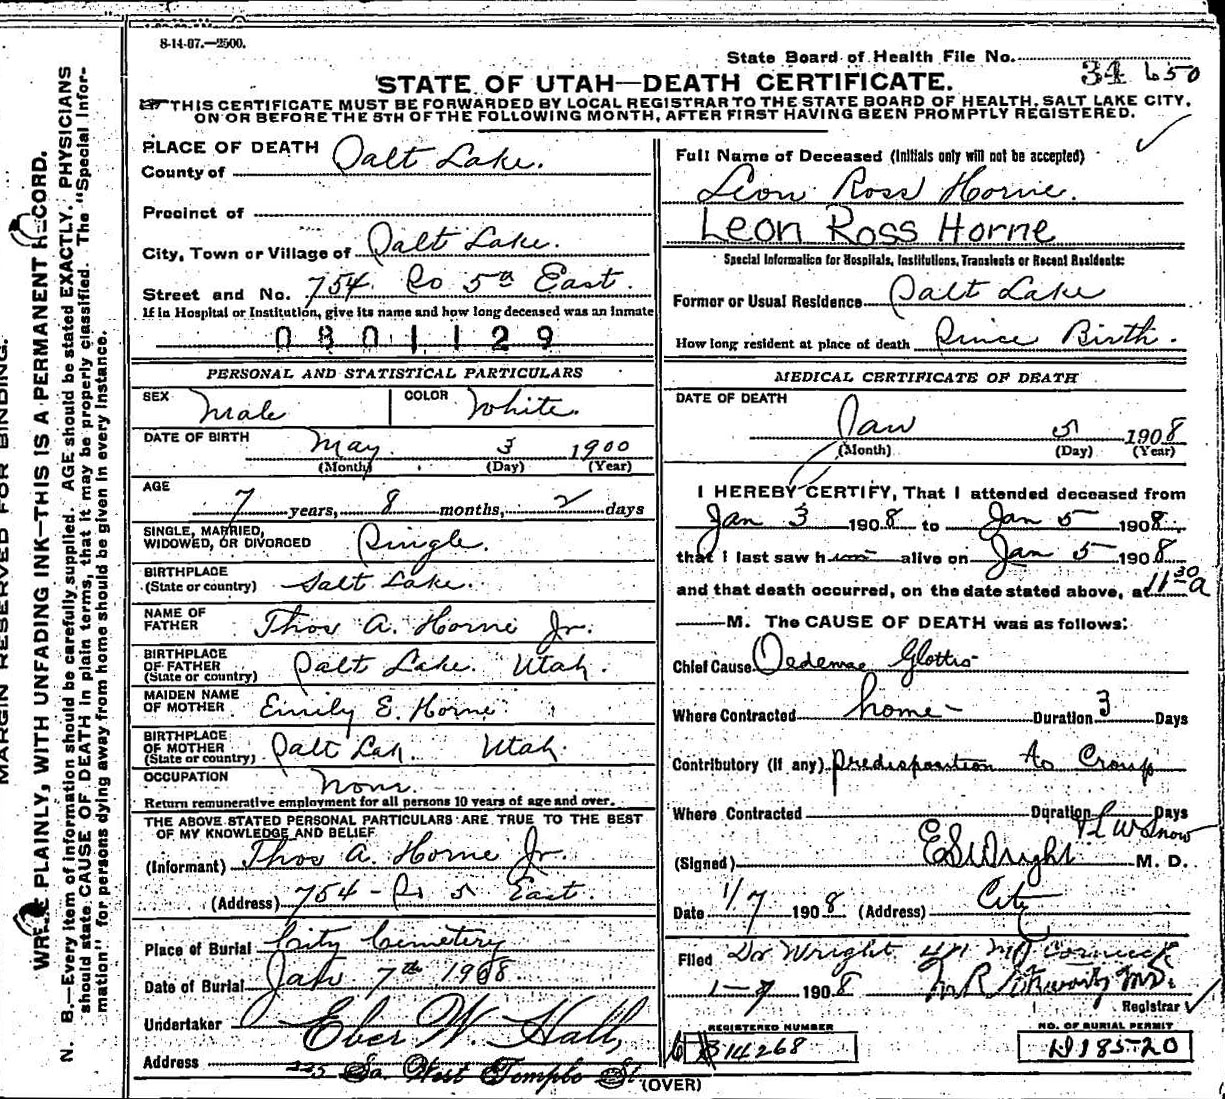 8-14-07.—2500.
State Board of Health File No. 34 650
STATE OF UTAH—DEATH CERTIFICATE.
THIS CERTIFICATE MUST BE FORWARDED BY LOCAL REGISTRAR TO THE STATE BOARD OF HEALTH, SALT LAKE CITY,
ON OR BEFORE THE 5TH OF THE FOLLOWING MONTH, AFTER FIRST HAVING BEEN PROMPTLY REGISTERED.
MARGIN RESERVED FOR BINDING.
WRITE PLAINLY, WITH UNFADING INK—THIS IS A PERMANENT RECORD.
N. B.—Every item of information should be carefully supplied. AGE should be stated EXACTLY. PHYSICIANS
should state CAUSE OF DEATH in plain terms, that it may be properly classified. The "Special Infor-
mation" for persons dying away from home should be given in every instance.
PLACE OF DEATH
County of Salt Lake.
Precinct of
City, Town or Village of Salt Lake.
Street and No. 754. So 5th East.
If in Hospital or Institution, give its name and how long deceased was an inmate
0801129
PERSONAL AND STATISTICAL PARTICULARS
SEX Male COLOR White.
DATE OF BIRTH May 3 1900
(Month) (Day) (Year)
AGE
7 years, 8 months, 2 days
SINGLE, MARRIED,
WIDOWED, OR DIVORCED Single.
BIRTHPLACE
(State or country) Salt Lake.
NAME OF
FATHER Thos A. Horne Jr.
BIRTHPLACE
OF FATHER
(State or country) Salt Lake. Utah.
MAIDEN NAME
OF MOTHER Emily E. Horne
BIRTHPLACE
OF MOTHER
(State or country) Salt Lak Utah.
OCCUPATION None.
Return remunerative employment for all persons 10 years of age and over.
THE ABOVE STATED PERSONAL PARTICULARS ARE TRUE TO THE BEST
OF MY KNOWLEDGE AND BELIEF
(Informant) Thos A. Horne Jr.
(Address) 754 - So 5 East.
Place of Burial City Cemetery
Date of Burial Jan 7th 1908
Undertaker Eber W. Hall,
Address 225 So. West Temple St
Full Name of Deceased (Initials only will not be accepted)
Leon Ross Horne.
Leon Ross Horne
Special Information for Hospitals, Institutions, Transients or Recent Residents:
Former or Usual Residence Salt Lake
How long resident at place of death Since Birth.
MEDICAL CERTIFICATE OF DEATH
DATE OF DEATH
Jan 5 1908
(Month) (Day) (Year)
I HEREBY CERTIFY, That I attended deceased from
Jan 3 1908 to Jan 5 1908.
that I last saw him alive on Jan 5 1908
and that death occurred, on the date stated above, at 11 30 a
M. The CAUSE OF DEATH was as follows:
Chief Cause Oedemae Glottis
Where Contracted home Duration 3 Days
Contributory (if any) predisposition to Croup
Where Contracted Duration Days
(Signed) E S Wright M. D.
Date 1/7 1908 (Address) City
Filed Dr Wright
1-7 1908
Registrar
REGISTERED NUMBER
14268
NO. OF BURIAL PERMIT
D 18520
(OVER)